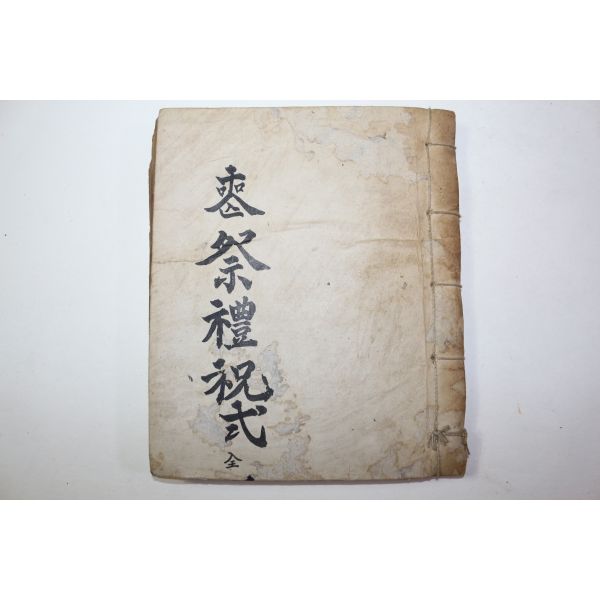 喪祭禮祝式
全